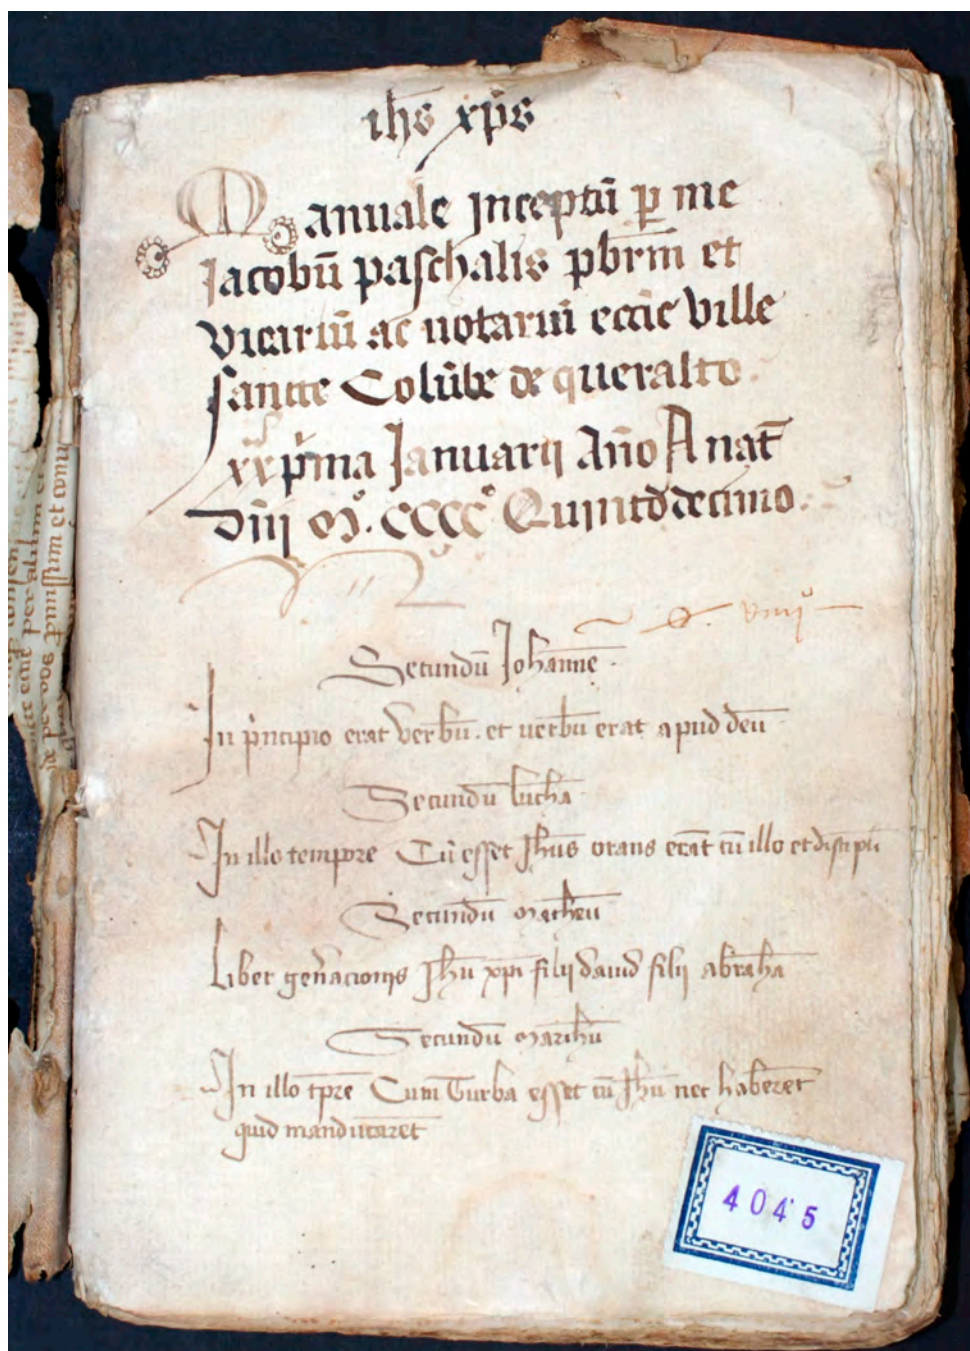 ihs xps
Manuale inceptū p me
Jacobū paschalis pbrm̄ et
vicariū ac notariū eccie ville
sancte Colūbe de queralto.
xxpma Januarii Año A nat̄
dnī Mº. CCCCº Quintodecimo.
Secundū Johannē.
In pncipio erat verbū. et uerbū erat apud deū
Secundū lucha
In illo tempore Cū esset Jhūs orans erat cū illo et discipli
Secundū Matheū
Liber geñacionis Jhū xpi filii dauid filii abrahā
Secundū Marchū
In illo tpre Cum Turba esset cū Jhū nec haberet
quid manducaret
4045